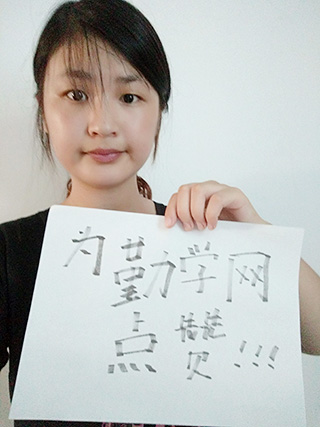 为勤学网
点赞!!!